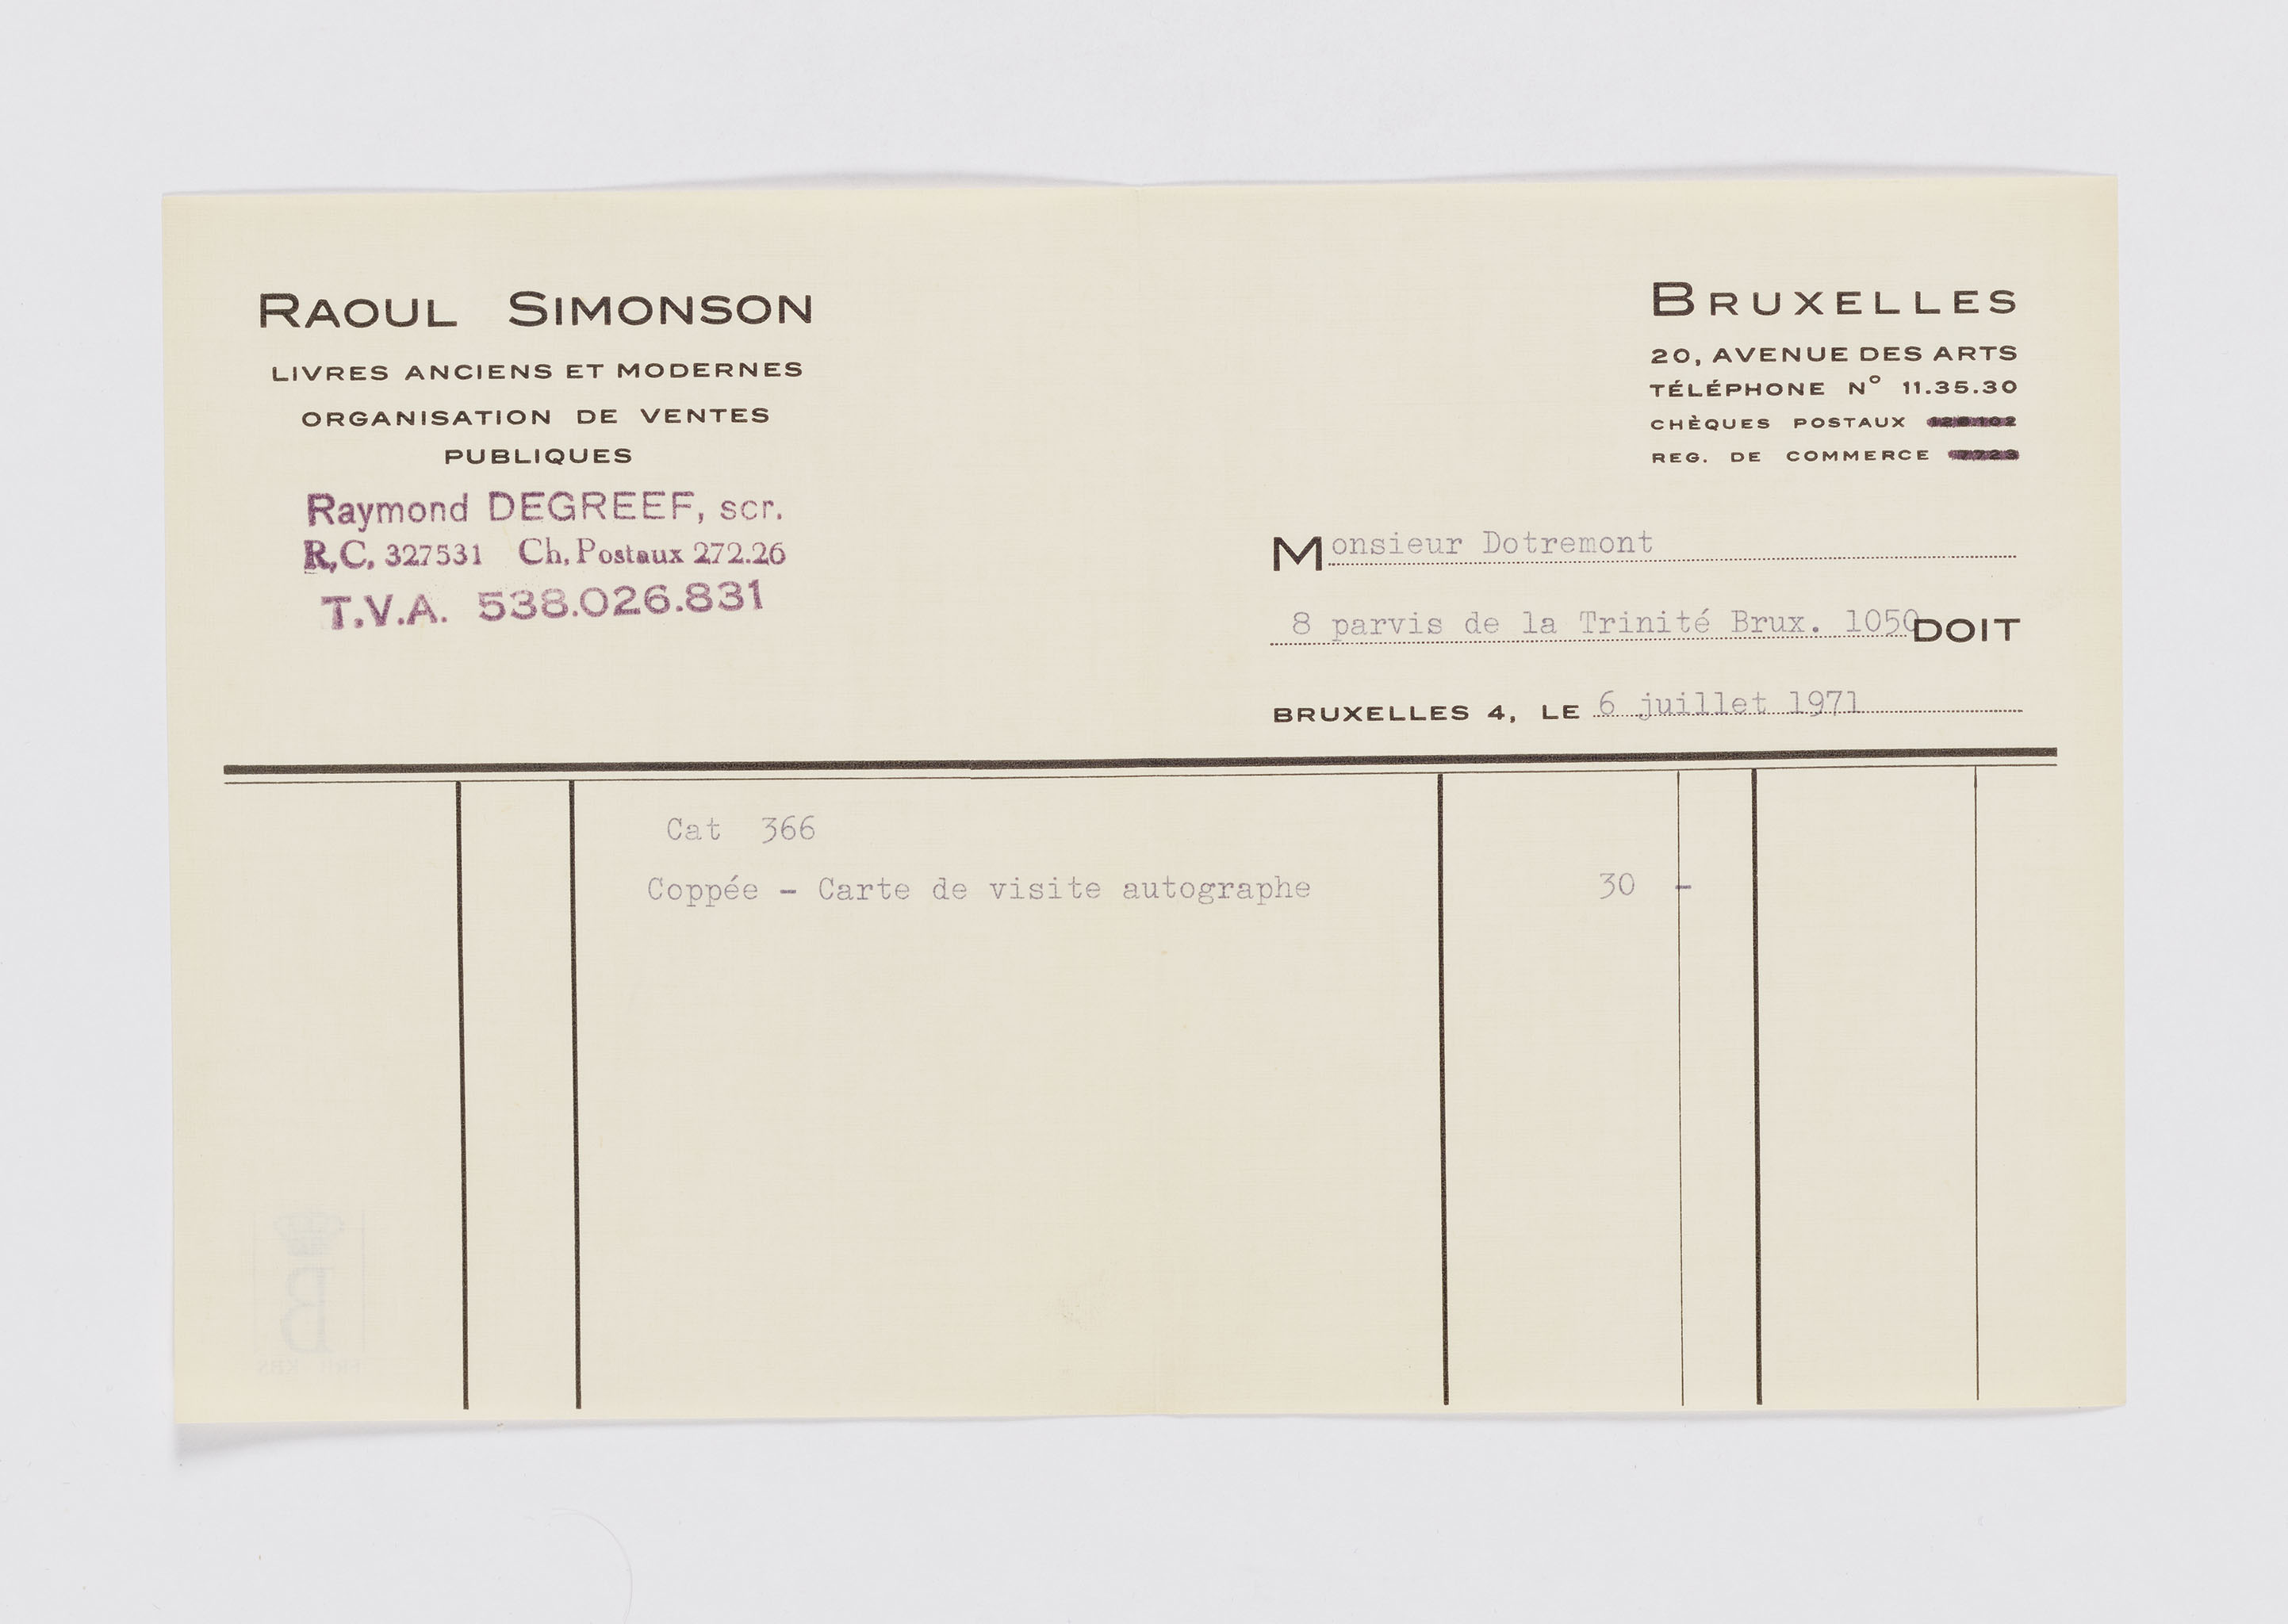 RAOUL SIMONSON
LIVRES ANCIENS ET MODERNES
ORGANISATION DE VENTES
PUBLIQUES
Raymond DEGREEF, scr.
R.C. 327531 Ch. Postaux 272.26
T.V.A. 538.026.831
BRUXELLES
20, AVENUE DES ARTS
TÉLÉPHONE N° 11.35.30
CHÈQUES POSTAUX
REG. DE COMMERCE
Monsieur Dotremont
8 parvis de la Trinité Brux. 1050 DOIT
BRUXELLES 4, LE 6 juillet 1971
Cat 366
Coppée - Carte de visite autographe 30 -